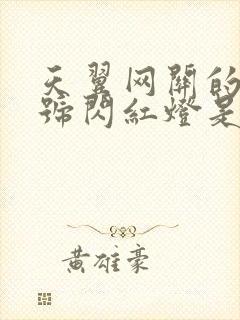 天翼网關的
號閃紅燈是
黃雄豪